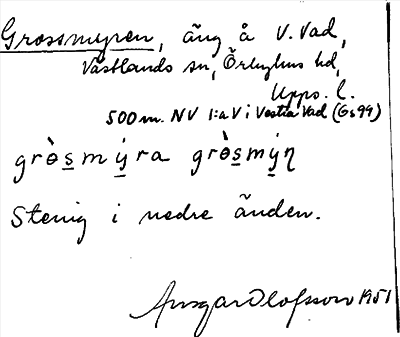 Grossmyren, äng å V. Vad,
Västlands sn, Örbyhus hd,
Upps. l.
500 m. NV 1:a V i Västra Vad (Gs 99)
grò̀smýra grò̀smýn
Stenig i nedre änden.
Ansgar Olofsson 1951